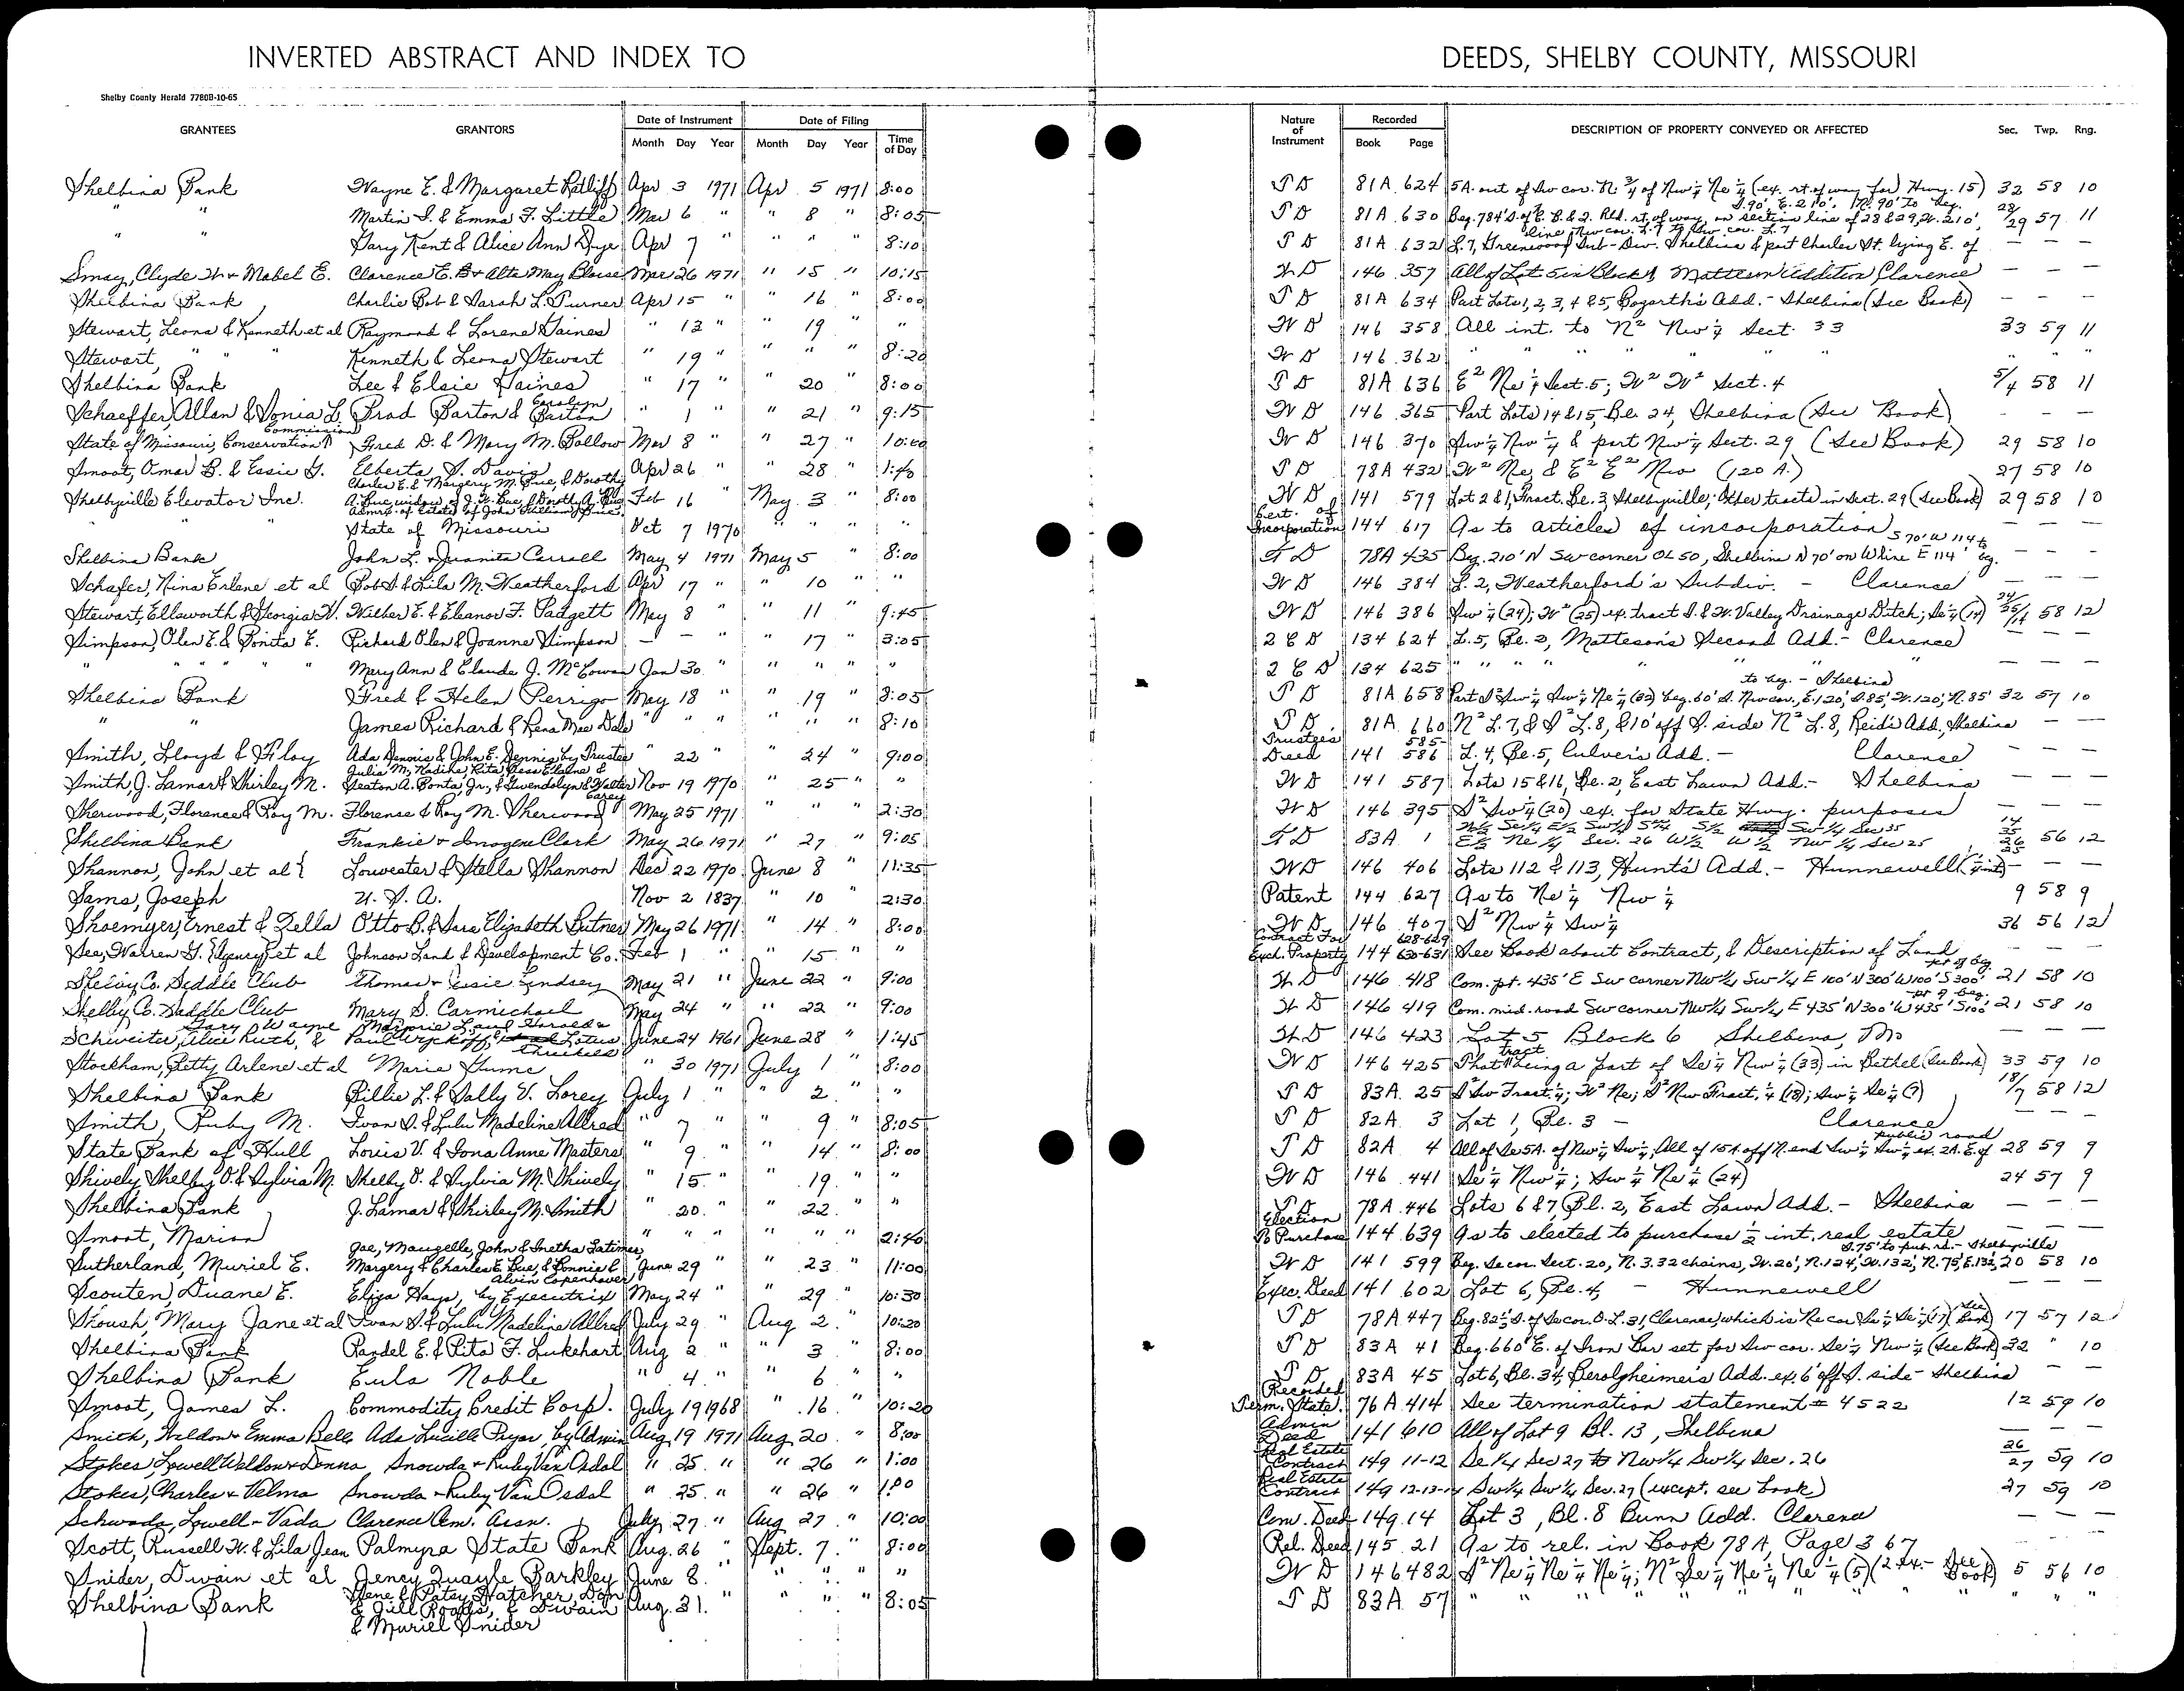 INVERTED ABSTRACT AND INDEX TO DEEDS, SHELBY COUNTY, MISSOURI
Shelby County Herald 7780B-10-65
GRANTEES GRANTORS Date of Instrument Date of Filing Nature of Instrument Recorded DESCRIPTION OF PROPERTY CONVEYED OR AFFECTED Sec. Twp. Rng.
Month Day Year Month Day Year Time of Day Book Page
Shelbina Bank Wayne E. & Margaret Ratliff Apr 3 1971 Apr 5 1971 8:00 T D 81A 624 5A. out of Sw cor. N. 3/4 of Nw 1/4 Ne 1/4 (ex. rt. of way for) Hwy. 15) 32 58 10
" " Martin S. & Emma F. Little Mar 6 " " 8 " 8:05 T D 81A 630 Beg. 784' S. of C. B. & Q. Rld. rt. of way, on section line of 28 & 29, W. 210', S. 90', E. 210', N. 90' to beg. 28/29 57 11
" " Gary Kent & Alice Ann Dye Apr 7 " " " " 8:10 T D 81A 632 L. 7, Greenwood Sub-Div. Shelbina & part Charles St. lying E. of line Nw cor. L. 7 to Sw cor. L. 7 — — —
Smay, Clyde W. & Mabel E. Clarence E. B. & Alta May Blouse Mar 26 1971 " 15 " 10:15 W D 146 357 All of Lot 5 in Block 1, Matteson Addition Clarence — — —
Shelbina Bank Charlie Bob & Sarah L. Turner Apr 15 " " 16 " 8:00 T D 81A 634 Part Lots 1, 2, 3, 4 & 5, Bogarth's Add. - Shelbina (See Book) — — —
Stewart, Leona & Kenneth et al Raymond & Lorene Gaines " 13 " " 19 " " W D 146 358 All int. to N² Nw 1/4 Sect. 33 33 59 11
Stewart, " " " Kenneth & Leona Stewart " 19 " " " " 8:20 W D 146 362 " " " " " " " " "
Shelbina Bank Lee & Elsie Haines " 17 " " 20 " 8:00 T D 81A 636 E² Ne 1/4 Sect. 5; W² W² Sect. 4 5/4 58 11
Schaeffer, Allan & Sonia L. Brad Barton & Carolyn Barton " 1 " " 21 " 9:15 W D 146 365 Part Lots 14 & 15, Bl. 24, Shelbina (See Book) — — —
State of Missouri, Conservation Commission Fred D. & Mary M. Ballow Mar 8 " " 27 " 10:00 W D 146 370 Sw 1/4 Nw 1/4 & part Nw 1/4 Sect. 29 (See Book) 29 58 10
Smoot, Omar B. & Essie G. Elberta S. Davis Apr 26 " " 28 " 1:40 T D 78A 432 W² Ne, & E² E² Nw (120 A.) 27 58 10
Shelbyville Elevator Inc. Charles E. & Margery M. Bue, & Dorothy A. Bue, widow of J. W. Bue, & Dorothy A. Bue Admrx. of Estate of John William Bue Feb 16 " May 3 " 8:00 W D 141 579 Lot 2 & 1, Fract. Bl. 3, Shelbyville; Other tracts in Sect. 29 (See Book) 29 58 10
" " State of Missouri Oct 7 1970 " " " " Cert. of Incorporation 144 617 As to articles of incorporation — — —
Shelbina Bank John L. & Juanita Carroll May 4 1971 May 5 " 8:00 T D 78A 435 Beg. 210' N SW corner OL 50, Shelbina N 70' on W line E 114' S 70' W 114 to beg. — — —
Schafer, Nina Erlene et al Bob D. & Lila M. Weatherford Apr 17 " " 10 " " W D 146 384 L. 2, Weatherford's Subdiv. - Clarence — — —
Stewart, Ellsworth & Georgia W. Wilber E. & Eleanor F. Padgett May 8 " " 11 " 9:45 W D 146 386 Sw 1/4 (24); W² (25) ex. tract S. & W. Valley Drainage Ditch; Se 1/4 (14) 24/25/14 58 12
Stimpson, Olen E. & Bonita E. Richard Olen & Joanne Stimpson — — " " 17 " 3:05 2 C D 134 624 L. 5, Bl. 2, Matteson's Second Add. - Clarence — — —
" " " " Mary Ann & Claude J. McGowan Jan 30 " " " " " 2 C D 134 625 " " " " " " — — —
Shelbina Bank Fred & Helen Perrigo May 18 " " 19 " 8:05 T D 81A 658 Part S² Sw 1/4 Sw 1/4 Ne 1/4 (32) beg. 60' S. Nw cor., E. 120', S. 85', W. 120', N. 85' to beg. - Shelbina 32 57 10
" " James Richard & Rena Mae Dale " " " " " " 8:10 T D 81A 660 N² L. 7, & S² L. 8, & 10' off S. side N² L. 8, Reid's Add, Shelbina — —
Smith, Lloyd & Floy Ada Dennis & John E. Dennis by Trustee " 22 " " 24 " 9:00 Trustee's Deed 141 585-586 L. 4, Bl. 5, Culver's Add. - Clarence — — —
Smith, J. Lamar & Shirley M. Julia M., Nadine, Rita, Bess Elaine & Seaton A. Bonta, Jr., & Gwendolyn & Walter Carey Nov 19 1970 " 25 " " W D 141 587 Lots 15 & 16, Bl. 2, East Lawn Add. - Shelbina — — —
Sherwood, Florence & Roy M. Florence & Roy M. Sherwood May 25 1971 " " " 2:30 W D 146 395 S² Sw 1/4 (20) ex. for State Hwy. purposes — — —
Shelbina Bank Frankie & Imogene Clark May 26 1971 " 27 " 9:05 T D 83A 1 W½ Se¼ E½ Sw¼ S½ Sw¼ Sec 35 E½ Ne¼ Sec. 26 W½ W½ Nw¼ Sec 25 56 12
Shannon, John et al Louvester & Stella Shannon Dec 22 1970 June 8 " 11:35 W D 146 406 Lots 112 & 113, Hunt's Add. - Hunnewell — —
Sams, Joseph U. S. A. Nov 2 1837 " 10 2:30 Patent 144 627 As to Ne 1/4 Nw 1/4 9 58 9
Shoemyer, Ernest & Zella Otto B. & Sara Elizabeth Butner May 26 1971 " 14 " 8:00 W D 146 407 S² Nw 1/4 Sw 1/4 36 56 12
See, Warren G. (Agency) et al Johnson Land & Development Co. Feb 1 " " 15 " " Contract For Exch. Property 144 628-629 630-631 See Book about Contract, & Description of Land
Shelby Co. Saddle Club Thomas & Elsie Lindsey May 21 " June 22 " 9:00 W D 146 418 Com. pt. 435' E Sw corner Nw¼ Sw¼ E 100' N 300' W 100' S 300' pt of beg 21 58 10
Shelby Co. Saddle Club Mary S. Carmichael May 24 " " 22 " 9:00 W D 146 419 Com. mid. road Sw corner Nw¼ Sw¼ E 435' N 300' W 435' S 100' pt of beg. 21 58 10
Schweiter, Alice Ruth, & Gary Wayne Marjorie L. and Harold & Paul Wyckoff, Lotus June 24 1961 June 28 " 1:45 W D 146 423 Lot 5 Block 6 Shelbina, Mo — — —
Stockham, Betty Arlene et al Marie Gume " 30 1971 July 1 " 8:00 W D 146 425 That tract being a part of Se 1/4 Nw 1/4 (33) in Bethel (See Book) 33 59 10
Shelbina Bank Billie L. & Sally V. Lorey July 1 " " 2 " " T D 83A 25 S² Sw Fract. 1/4; W² Ne; S² Nw Fract. 1/4 (18); Sw 1/4 Se 1/4 (7) 18/7 58 12
Smith, Ruby M. Ivan S. & Lulu Madeline Allred " 7 " " 9 " 8:05 T D 82A 3 Lot 1, Bl. 3 - Clarence — — —
State Bank of Hull Louis V. & Iona Anne Masters " 9 " " 14 " 8:00 T D 82A 4 All of Se 5A. of Nw 1/4 Sw 1/4; All of 15A. off N. end Sw 1/4 Sw 1/4 ex. 2A. E. of public road 28 59 9
Shively Shelby O. & Sylvia M. Shelby O. & Sylvia M. Shively " 15 " " 19 " " W D 146 441 Se 1/4 Nw 1/4; Sw 1/4 Ne 1/4 (24) 24 57 9
Shelbina Bank J. Lamar & Shirley M. Smith " 20 " " 22 " " T D 78A 446 Lots 6 & 7, Bl. 2, East Lawn Add. - Shelbina — — —
Smoot, Marion " " " " " " 2:40 Election To Purchase 144 639 As to elected to purchase 1/2 int. real estate — — —
Sutherland, Muriel E. Jae, Maugelle, John & Inetha Latimer, Margery & Charles E. Bue, & Bonnie & Alvin Copenhaver June 29 " " 23 " 11:00 W D 141 599 Beg. Se cor. Sect. 20, N. 3.32 chains, W. 20', N. 124', W. 132', N. 75', E. 132', S. 75' to pub. rd. - Shelbyville 20 58 10
Scouten, Duane E. Eliza Hays, by Executrix May 24 " " 29 " 10:30 Exec. Deed 141 602 Lot 6, Bl. 4, - Hunnewell
Shoush, Mary Jane et al Ivan S. & Lulu Madeline Allred July 29 " Aug 2 " 10:20 T D 78A 447 Beg. 82½' S. of Se cor. O. L. 31, Clarence, which is Ne cor Sw 1/4 Se 1/4 (17) (See Book) 17 57 12
Shelbina Bank Randel E. & Rita F. Lukehart Aug 2 " " 3 " 8:00 T D 83A 41 Beg. 660' E. of Iron Bar set for Sw cor. Se 1/4 Nw 1/4 (See Book) 32 " 10
Shelbina Bank Eula Noble " 4 " " 6 " " T D 83A 45 Lot 6, Bl. 34, Berolzheimer's Add. ex. 6' off S. side - Shelbina — —
Smoot, James L. Commodity Credit Corp. July 19 1968 " 16 " 10:20 Recorded Term. State. 76A 414 See termination statement # 4522 12 59 10
Smith, Weldon & Emma Belle Ada Lucille Pryor, by Admin Aug 19 1971 Aug 20 " 8:00 Admin Deed 141 610 All of Lot 9 Bl. 13, Shelbina — —
Stokes, Lowell Weldon & Donna Snowda & Ruby Van Osdol " 25 " " 26 " 1:00 Real Estate Contract 149 11-12 Se 1/4 Sec 27 Nw¼ Sw¼ Sec. 26 26/27 59 10
Stokes, Charles & Velma Snowda & Ruby Van Osdol " 25 " " 26 " 1:00 Real Estate Contract 149 12-13-14 Sw¼ Sw¼ Sec. 27 (except, see book) 27 59 10
Schwada, Lowell - Vada Clarence Cem. Assn. July 27 " Aug 27 " 10:00 Cem. Deed 149 14 Lot 3, Bl. 8 Bunn Add. Clarence — — —
Scott, Russell W. & Lila Jean Palmyra State Bank Aug. 26 " Sept. 7 " 8:00 Rel. Deed 145 21 As to rel. in Book 78A, Page 367
Snider, Dwain et al Jency Quayle Barkley June 8 " " " " " W D 146 482 S² Ne 1/4 Ne 1/4 Ne 1/4; N² Se 1/4 Ne 1/4 Ne 1/4 (5) (2 - See Book) 5 56 10
Shelbina Bank Gene & Patsy Hatcher, Don & Jill Roads, & Dwain & Muriel Snider Aug. 31 " " " " 8:05 T D 83A 57 " " " " " " " " " "